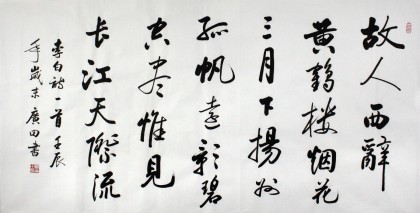 故人西辭
黄鶴楼烟花
三月下揚州
孤帆遠影碧
空盡惟見
長江天際流
李白詩一首壬辰
年歲末廣田書